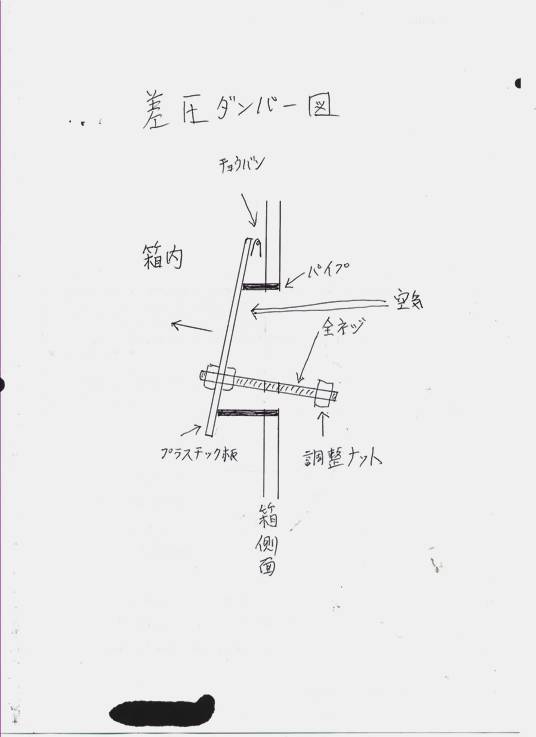 差圧ダンパー図
チョウバン
箱内
パイプ
空気
全ネジ
プラスチック板
調整ナット
箱側面